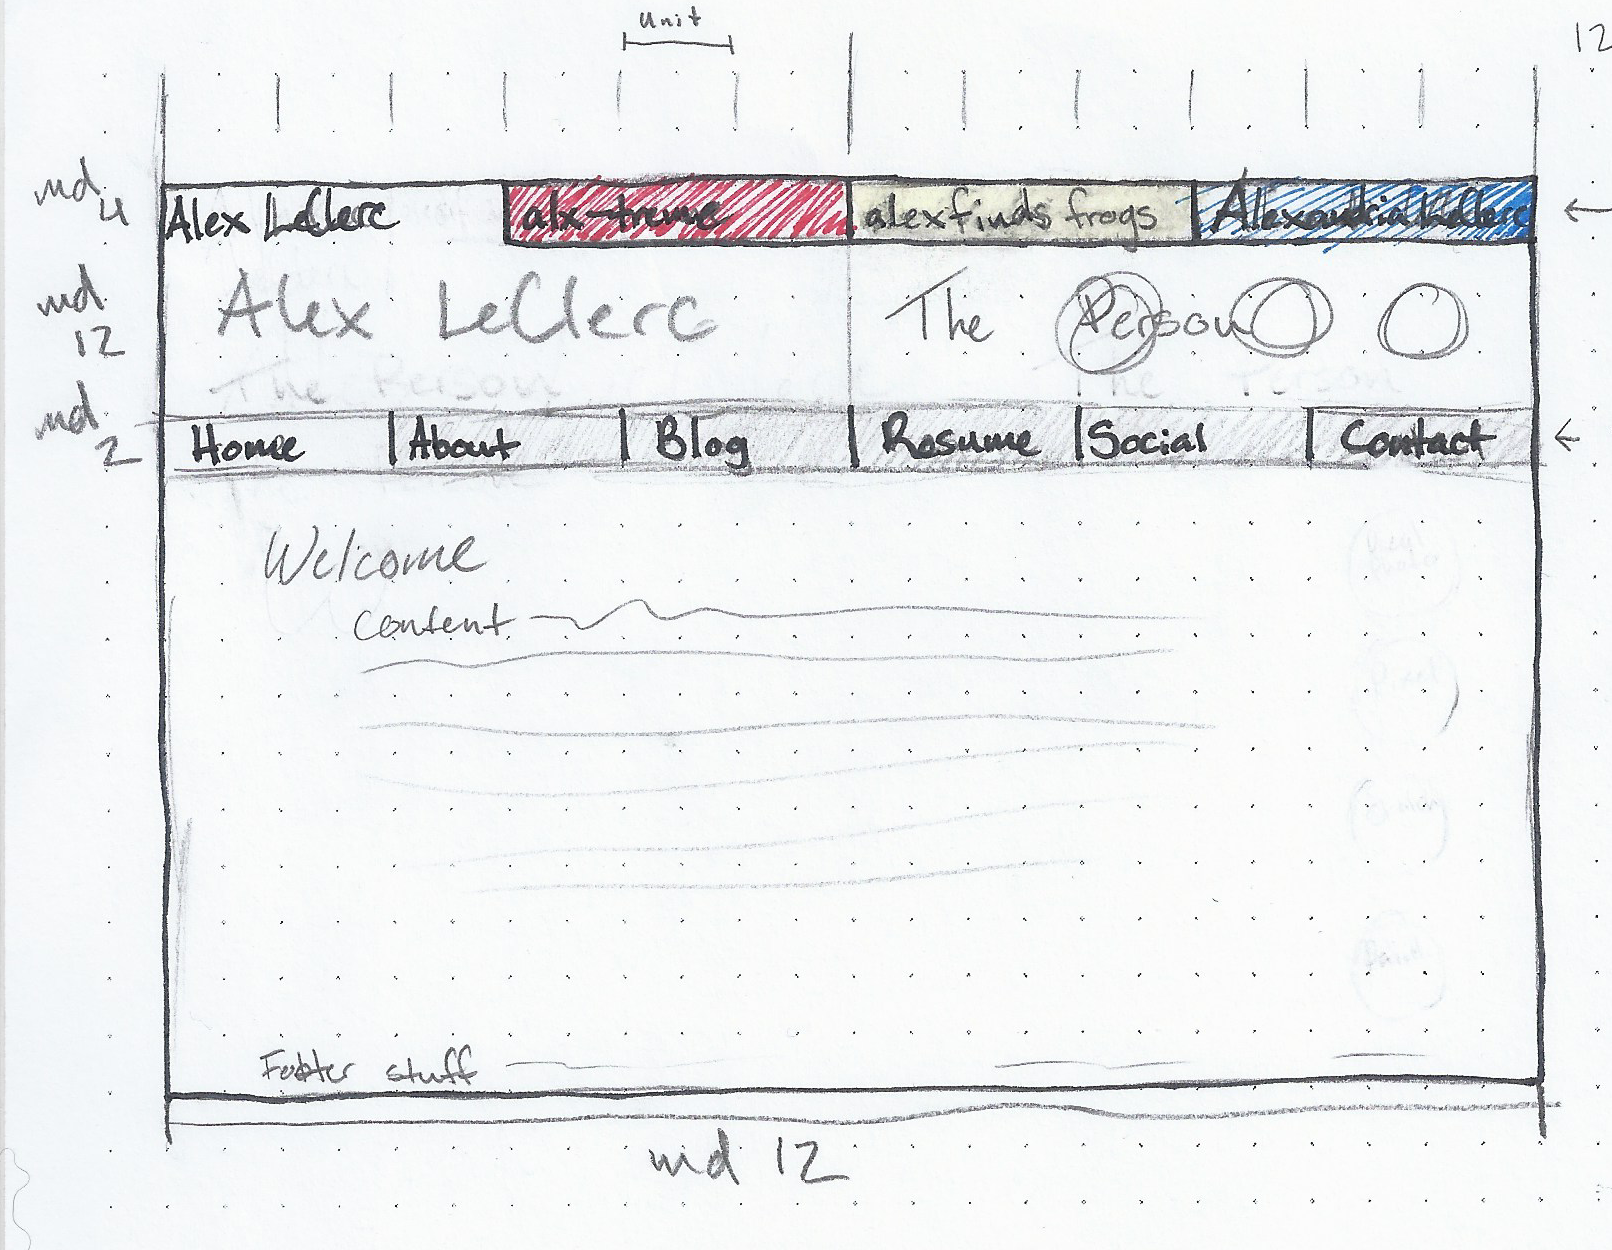 unit
12
md 4
Alex LeClerc alx-treme alexfinds frogs Alexandria LeClerc
md 12
Alex LeClerc The Person
The Person The Person
md 2
Home About Blog Resume Social Contact
Welcome
content
Footer stuff
md 12